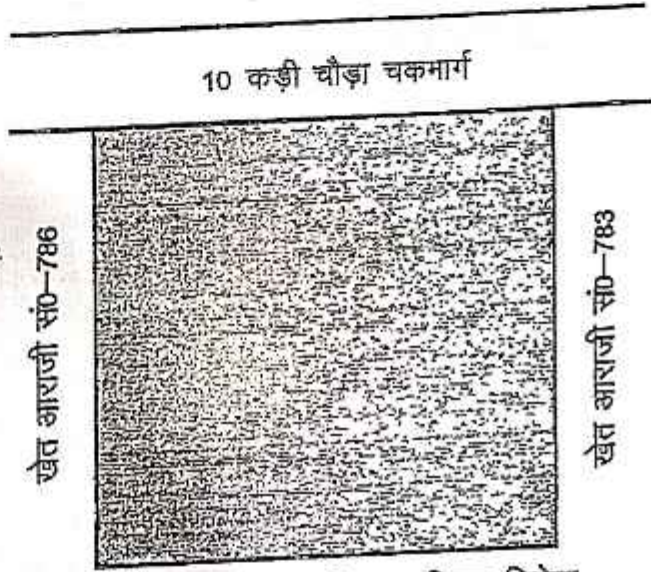 10 कड़ी चौड़ा चकमार्ग
खेत आराजी सं0–786
खेत आराजी सं0–783